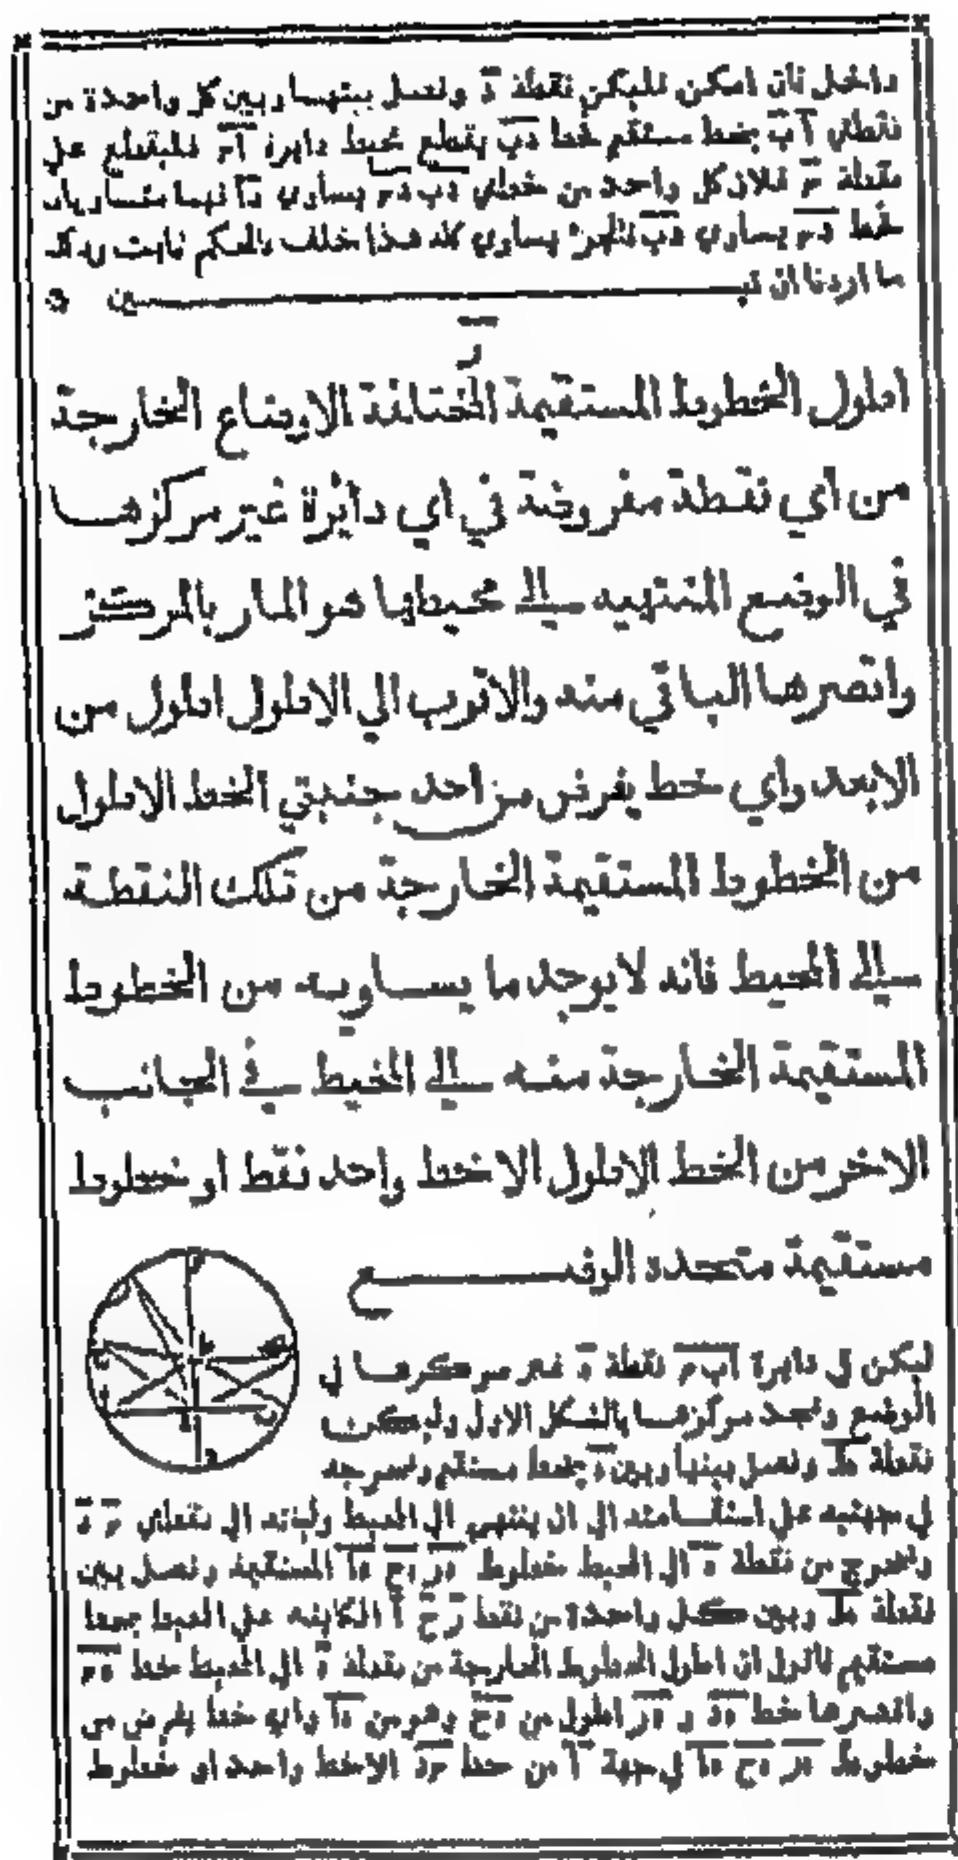 داخل فان امكن فليكن نقطة د ونصل بينهما وبين كل واحدة من
نقطتي آ ب بخط مستقيم فخط دب يقطع محيط دايرة آم فليقطع علي
نقطة م فلان كل واحد من خطي دب دم يساوي دآ فهما متساويان
خط دم يساوي دب فالجزء يساوي كله هذا خلف فالحكم ثابت وذلك
ما اردنا ان نبـــــين
ز
اطول الخطوط المستقيمة المختلفة الاوضاع الخارجة
من آي نقطة مفروضة في اي دايرة غير مركزها
في الوضع المنتهيه الي محيطها هو المار بالمركز
واقصرها الباقي منه والاقرب الي الاطول اطول من
الابعد واي خط يفرض من احد جنبتي الخط الاطول
من الخطوط المستقيمة الخارجة من تلك النقطة
الي المحيط فانه لا يوجد ما يساويه من الخطوط
المستقيمة الخارجة منه الي المحيط في الجانب
الاخر من الخط الاطول الا خط واحد فقط او خطوط
مستقيمة متحدة الوضـــــع
ليكن في دايرة آب م نقطة ه غير مركزها في
الوضع ونجد مركزها بالشكل الاول وليكن
نقطة ط ونصل بينها وبين ه بخط مستقيم ونخرجه
في جهتيه علي استقامته الي ان ينتهي الي المحيط ولينته الي نقطتي م د
ونخرج من نقطة ه الي المحيط خطوط هر هح هآ المستقيمة ونصل بين
نقطة ط وبين كل واحدة من نقط ر ح آ الكاينه علي المحيط بخط
مستقيم فاقول ان اطول الخطوط الخارجة من نقطة ه الي المحيط خط هم
واقصرها خط هد و هر اطول من هح وهو من هآ واي خط يفرض من
خطوط هر هح هآ في جهة آ من خط مد الا خط واحد او خطوط